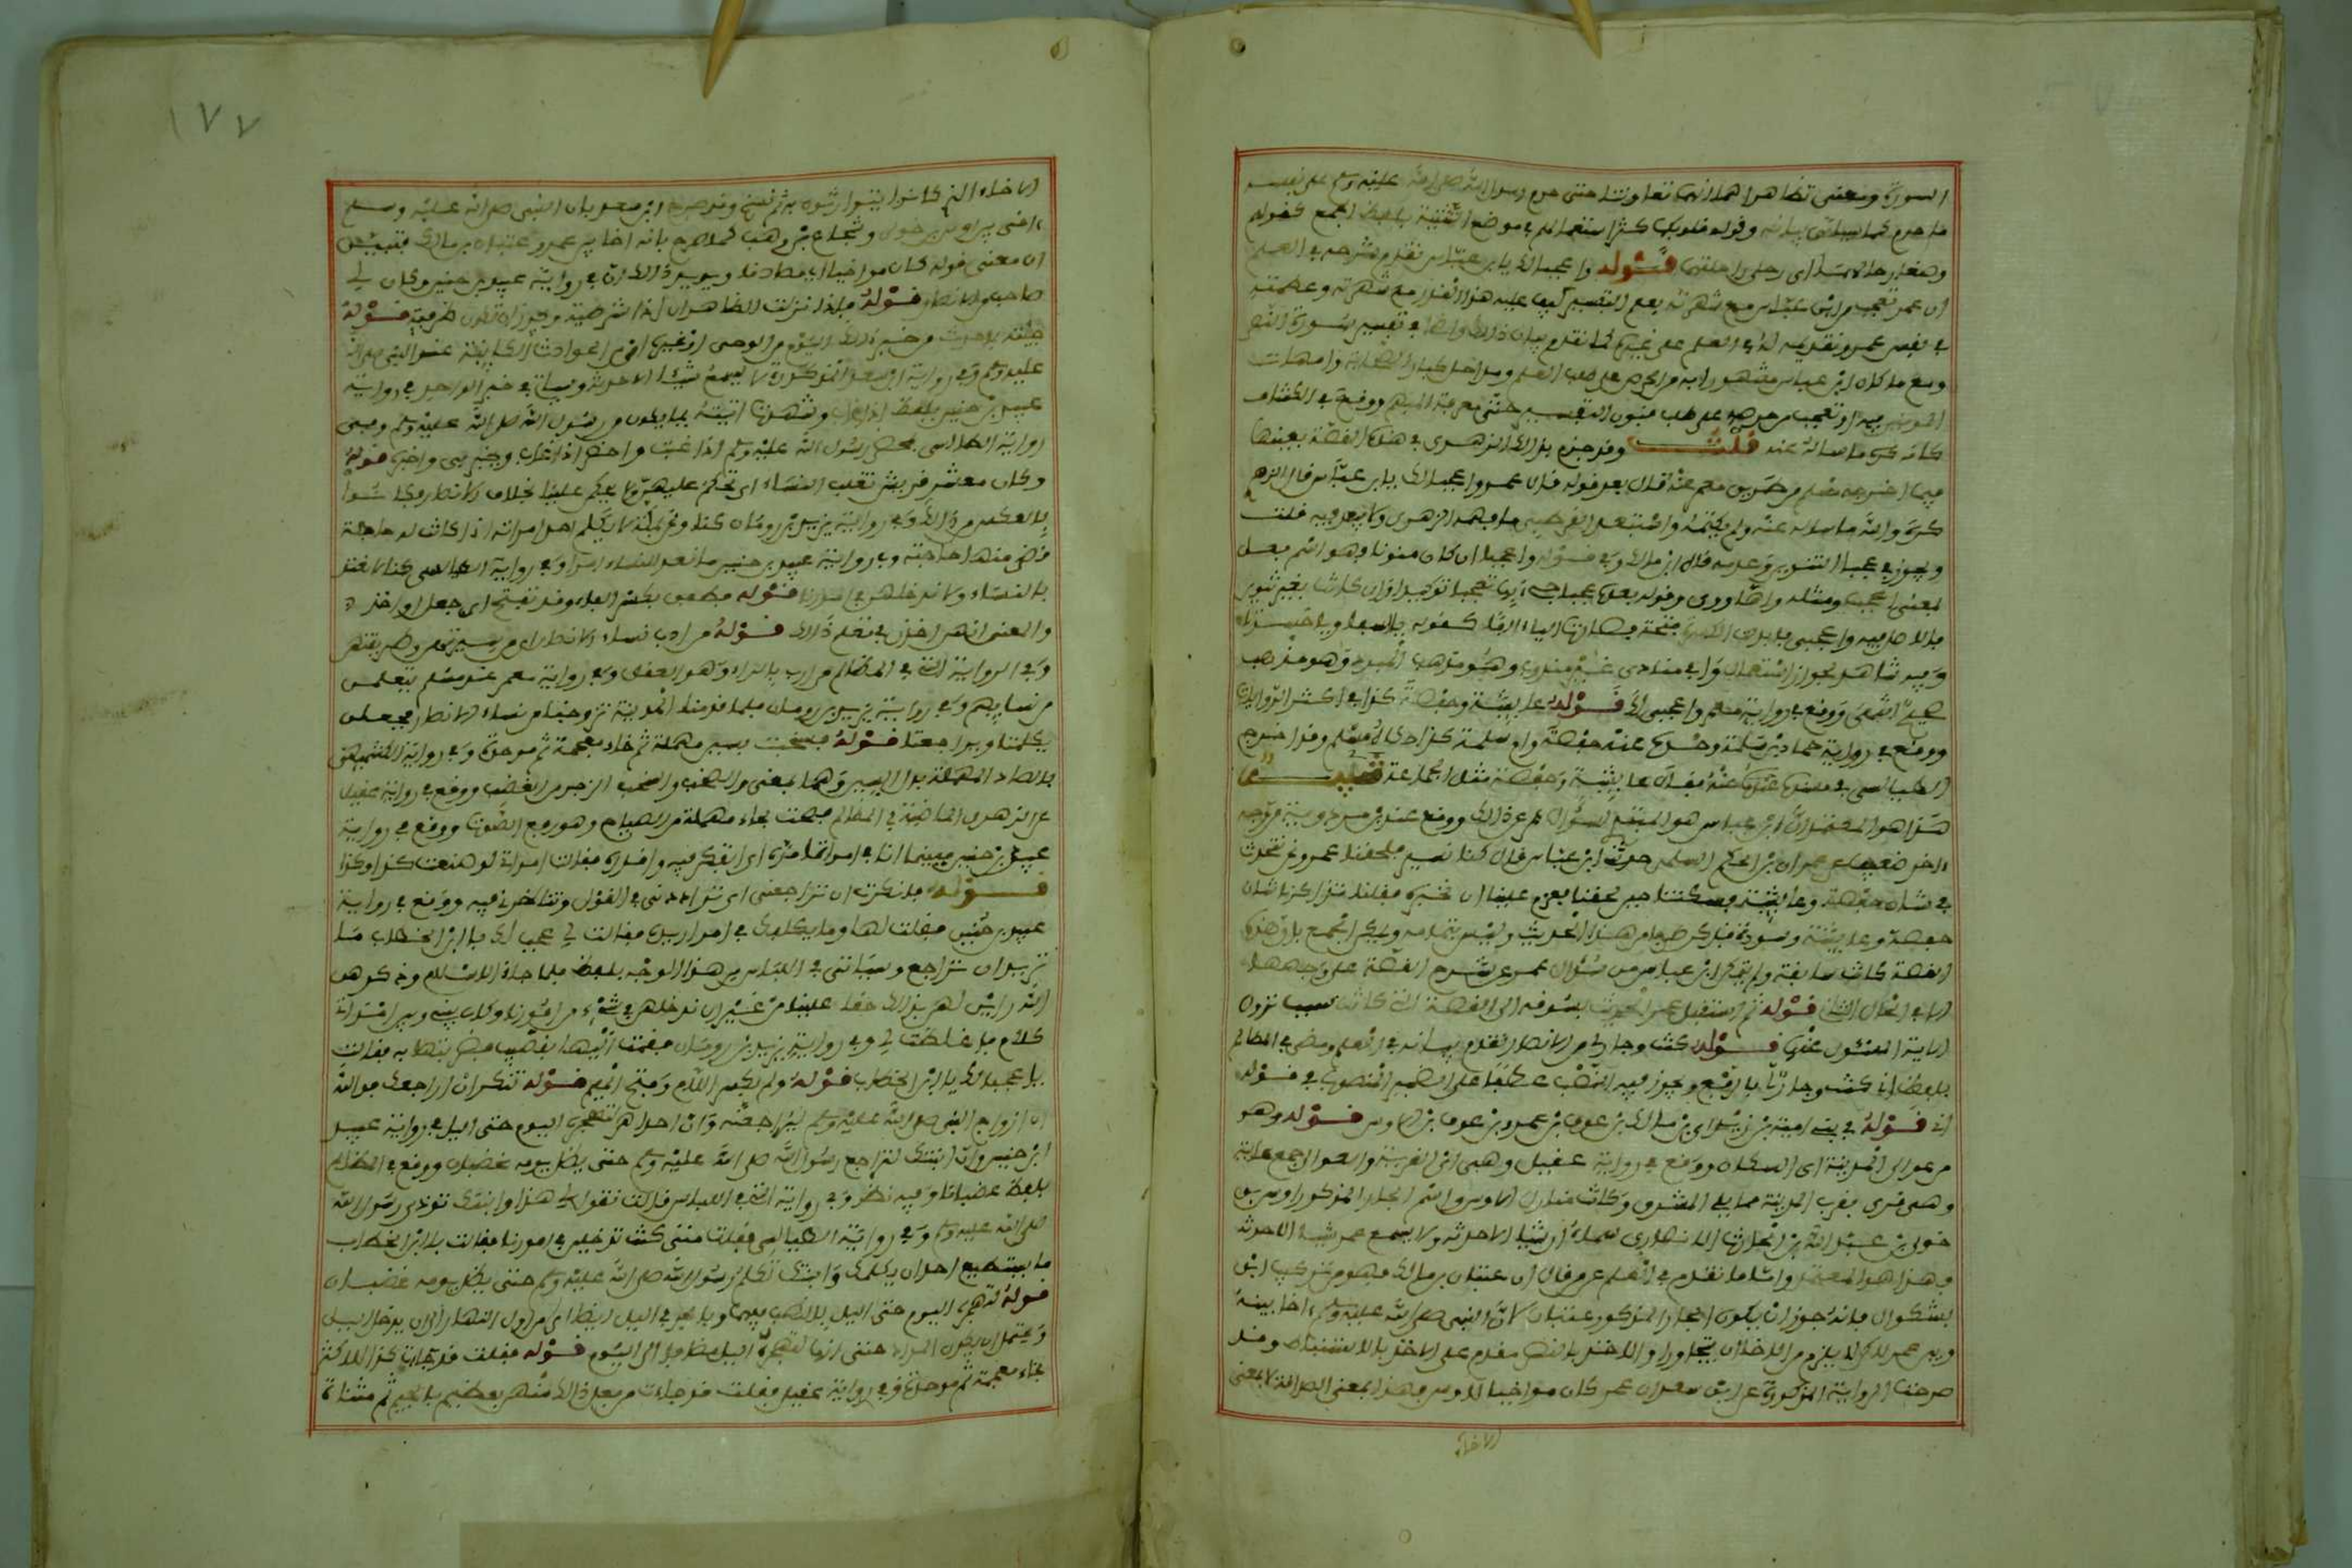 السورة ومعنى تظاهرا هما انهما تعاونتا حتى حرم رسول الله صلى الله عليه وسلم على نفسه
ما حرم كما سياتي بيانه وقوله قلوبكما كثر استعمالهم في موضع التثنية بلفظ الجمع كقولهم
وضعا رحالهما اى رحلى راحلتيهما قوله واعجبا لك يا بن عباس تقدم شرحه في العلم
ان عمر تعجب من ابن عباس مع شهرته بعلم التفسير كيف خفي عليه هذا القدر مع شهرته وعظمته
في نفس عمر وتقديمه له في العلم على غيره كما تقدم بيان ذلك واضحا في تفسير سورة النصر
ومع ما كان ابن عباس مشهورا به من الحرص على طلب العلم ومداخلة كبار الصحابة وامهات
المومنين فيه او تعجب من حرصه على طلب فنون التفسير حتى معرفة المبهم ووقع في الكشاف
كانه كره ما ساله عنه قلت وقد جزم بذلك الزهري في هذه القصة بعينها
فيما اخرجه مسلم من طريق معمر عنه قال بعد قوله قال عمر واعجبا لك يا بن عباس قال الزهري
كره والله ما ساله عنه ولم يكتمه واستبعد القرطبي ما فهمه الزهري ولا بعد فيه قلت
ويجوز في عجبا التنوين وعدمه قال ابن مالك وا في قوله واعجبا ان كان منونا فهو اسم فعل
بمعنى اعجب ومثله واها ووى وقوله بعده عجبا جيء بها تعجبا توكيدا وان كان بغير تنوين
فالاصل فيه واعجبي فابدلت الكسرة فتحة فصارت الياء الفا كقوله يا اسفا ويا حسرتا
وفيه شاهد لجواز استعمال وا في منادى غير مندوب وهو مذهب المبرد وهو مذهب
صحيح انتهى ووقع في رواية معمر واعجبي لك قوله عايشة وحفصة كذا في اكثر الروايات
ووقع في رواية حماد بن سلمة وحده عنه حفصة وام سلمة كذا حكاه مسلم وقد اخرجه
الطيالسي في مسنده عنه فقال عايشة وحفصة مثل الجماعة تنبيه
هذا هو المعتمد ان ابن عباس هو المبتدئ بسوال عمر عن ذلك ووقع عند ابن مردويه من وجه
اخر ضعيف عن عمران بن الحكم السلمي حدثني ابن عباس قال كنا نسير فلحقنا عمر ونحن نتحدث
في شان حفصة وعايشة فسكتنا حين لحقنا فعزم علينا ان نخبره فقلنا تذاكرنا شان
حفصة وعايشة وسودة فذكر طرفا من هذا الحديث وليس بتمامه ويمكن الجمع بان هذه
القصة كانت سابقة ولم يتمكن ابن عباس من سوال عمر عن شرح القصة على وجهها
الا في الحال الثاني قوله ثم استقبل عمر الحديث يسوقه الى القصة التي كانت سبب نزول
الاية المسئول عنها قوله كنت وجار لي من الانصار تقدم بيانه في العلم ومضى في المظالم
بلفظ اني كنت وجار لي بالرفع ويجوز فيه النصب عطفا على الضمير المنصوب في قوله
اني قوله في بني امية بن زيد اي بن مالك بن عوف بن عمرو بن عوف من الاوس قوله وهم
من عوالي المدينة اي السكان ووقع في رواية عقيل وهي اي القرية والعوالي جمع عالية
وهي قرى بقرب المدينة مما يلي المشرق وكانت منازل الاوس واسم الجار المذكور اوس بن
خولي بن عبد الله بن الحارث الانصاري
فهذا هو المعتمد واما ما تقدم في العلم عمن قال انه عتبان بن مالك فهو من تركيب ابن
بشكوال فانه جوز ان يكون الجار المذكور عتبان لان النبي صلى الله عليه وسلم اخا بينه
وبين عمر لكن لا يلزم من الاخاء ان يتجاورا والاخذ بالنص مقدم على الاخذ بالاستنباط وقد
صرحت الرواية المذكورة عن ابن سعد ان عمر كان مواخيا لاوس فهذا بمعنى الصداقة لا بمعنى
الاخاء
١٧٧
الاخاء الذي كانوا يتوارثون به ثم نسخ وقد صرح ابن سعد بان النبي صلى الله عليه وسلم
اخى بين اوس بن خولي وشجاع بن وهب كما صرح بانه اخا بين عمر وعتبان بن مالك فتبين
ان معنى قوله كان مواخيا اي مصادقا ويويد ذلك ان في رواية عبيد بن حنين وكان لي
صاحب من الانصار قوله فاذا نزلت الظاهر ان اذا شرطية ويجوز ان تكون ظرفية قوله
جئته بما حدث من خبر ذلك اليوم من الوحي او غيره اي من الحوادث الكاينة عند النبي صلى الله
عليه وسلم وفي رواية ابن سعد المذكورة لا يسمع شيئا الا حدثه وسياتي في خبر الواحد في رواية
عبيد بن حنين بلفظ اذا غاب وشهدت اتيته بما يكون من رسول الله صلى الله عليه وسلم وفي
رواية الطيالسي يحضر رسول الله عليه وسلم اذا غبت واحضر اذا غاب ويخبرني واخبره قوله
وكنا معشر قريش نغلب النساء اي نحكم عليهن ولا يحكمن علينا بخلاف الانصار فكانوا
بالعكس من ذلك وفي رواية يزيد بن رومان كنا ونحن بمكة لا يكلم احد امراته اذا كانت له حاجة
قضى منها حاجته وفي رواية عبيد بن حنين ما نعد للنساء امرا وفي رواية الطيالسي كنا لا نعتد
بالنساء ولا ندخلهن في امورنا قوله فطفق بكسر الفاء وقد تفتح اي جعل او اخذ
والمعنى انهن اخذن في تعلم ذلك قوله من ادب نساء الانصار اي من سيرتهن وطريقتهن
وفي الرواية التي في المظالم من ارب بالراء وهو العقل وفي رواية معمر عند مسلم يتعلمن
من نسايهم وفي رواية يزيد بن رومان فلما قدمنا المدينة تزوجنا من نساء الانصار فجعلن
يكلمننا ويراجعننا قوله فسخبت بسين مهملة ثم خاء معجمة ثم موحدة وفي رواية الكشميهني
بالصاد المهملة بدل السين وهما بمعنى والصخب والسخب الزجر من الغضب ووقع في رواية عقيل
عن الزهري الماضية في المظالم فصحت بحاء مهملة من الصياح وهو رفع الصوت ووقع في رواية
عبيد بن حنين فبينما انا في امر اتامره اي اتفكر فيه واقدره فقالت امراتي لو صنعت كذا وكذا
قوله فانكرت ان تراجعني اي تراددني في القول وتناظرني فيه ووقع في رواية
عبيد بن حنين فقلت لها وما تكلفك في امر اريده فقالت لي عجبا لك يا ابن الخطاب ما
تريد ان تراجع وسياتي في اللباس من هذا الوجه بلفظ فلما جاء الاسلام وذكرهن
الله راين لهن بذلك حقا علينا من غير ان ندخلهن في شيء من امورنا وكان بيني وبين امراتي
كلام فاغلظت لي وفي رواية يزيد بن رومان فقمت اليها بقضيب فضربتها به فقالت
يا عجبا لك يا ابن الخطاب قوله ولم بكسر اللام وفتح الميم قوله تنكر ان اراجعك فوالله
ان ازواج النبي صلى الله عليه وسلم ليراجعنه وان احداهن لتهجره اليوم حتى الليل في رواية عبيد
ابن حنين وان ابنتك لتراجع رسول الله صلى الله عليه وسلم حتى يظل يومه غضبان ووقع في المظالم
بلفظ غضبانا وفيه نظر وفي رواية التي في اللباس قالت تقول لي هذا وابنتك توذي رسول الله
صلى الله عليه وسلم وفي رواية الطيالسي فقلت متى كنت تدخلين في امورنا فقالت يا ابن الخطاب
ما يستطيع احد ان يكلمك وابنتك تكلم رسول الله صلى الله عليه وسلم حتى يظل يومه غضبان
قوله لتهجره اليوم حتى الليل بالنصب فيهما وبالجر في الليل ايضا اي من اول النهار الى ان يدخل الليل
ويحتمل ان يكون المراد حتى انها لتهجره الليل مضافا الى اليوم قوله فقلت قد خابت كذا للاكثر
بخاء معجمة ثم موحدة وفي رواية عقيل فقلت قد جاءت من فعل ذلك منهن بعظيم بالجيم ثم مثناة